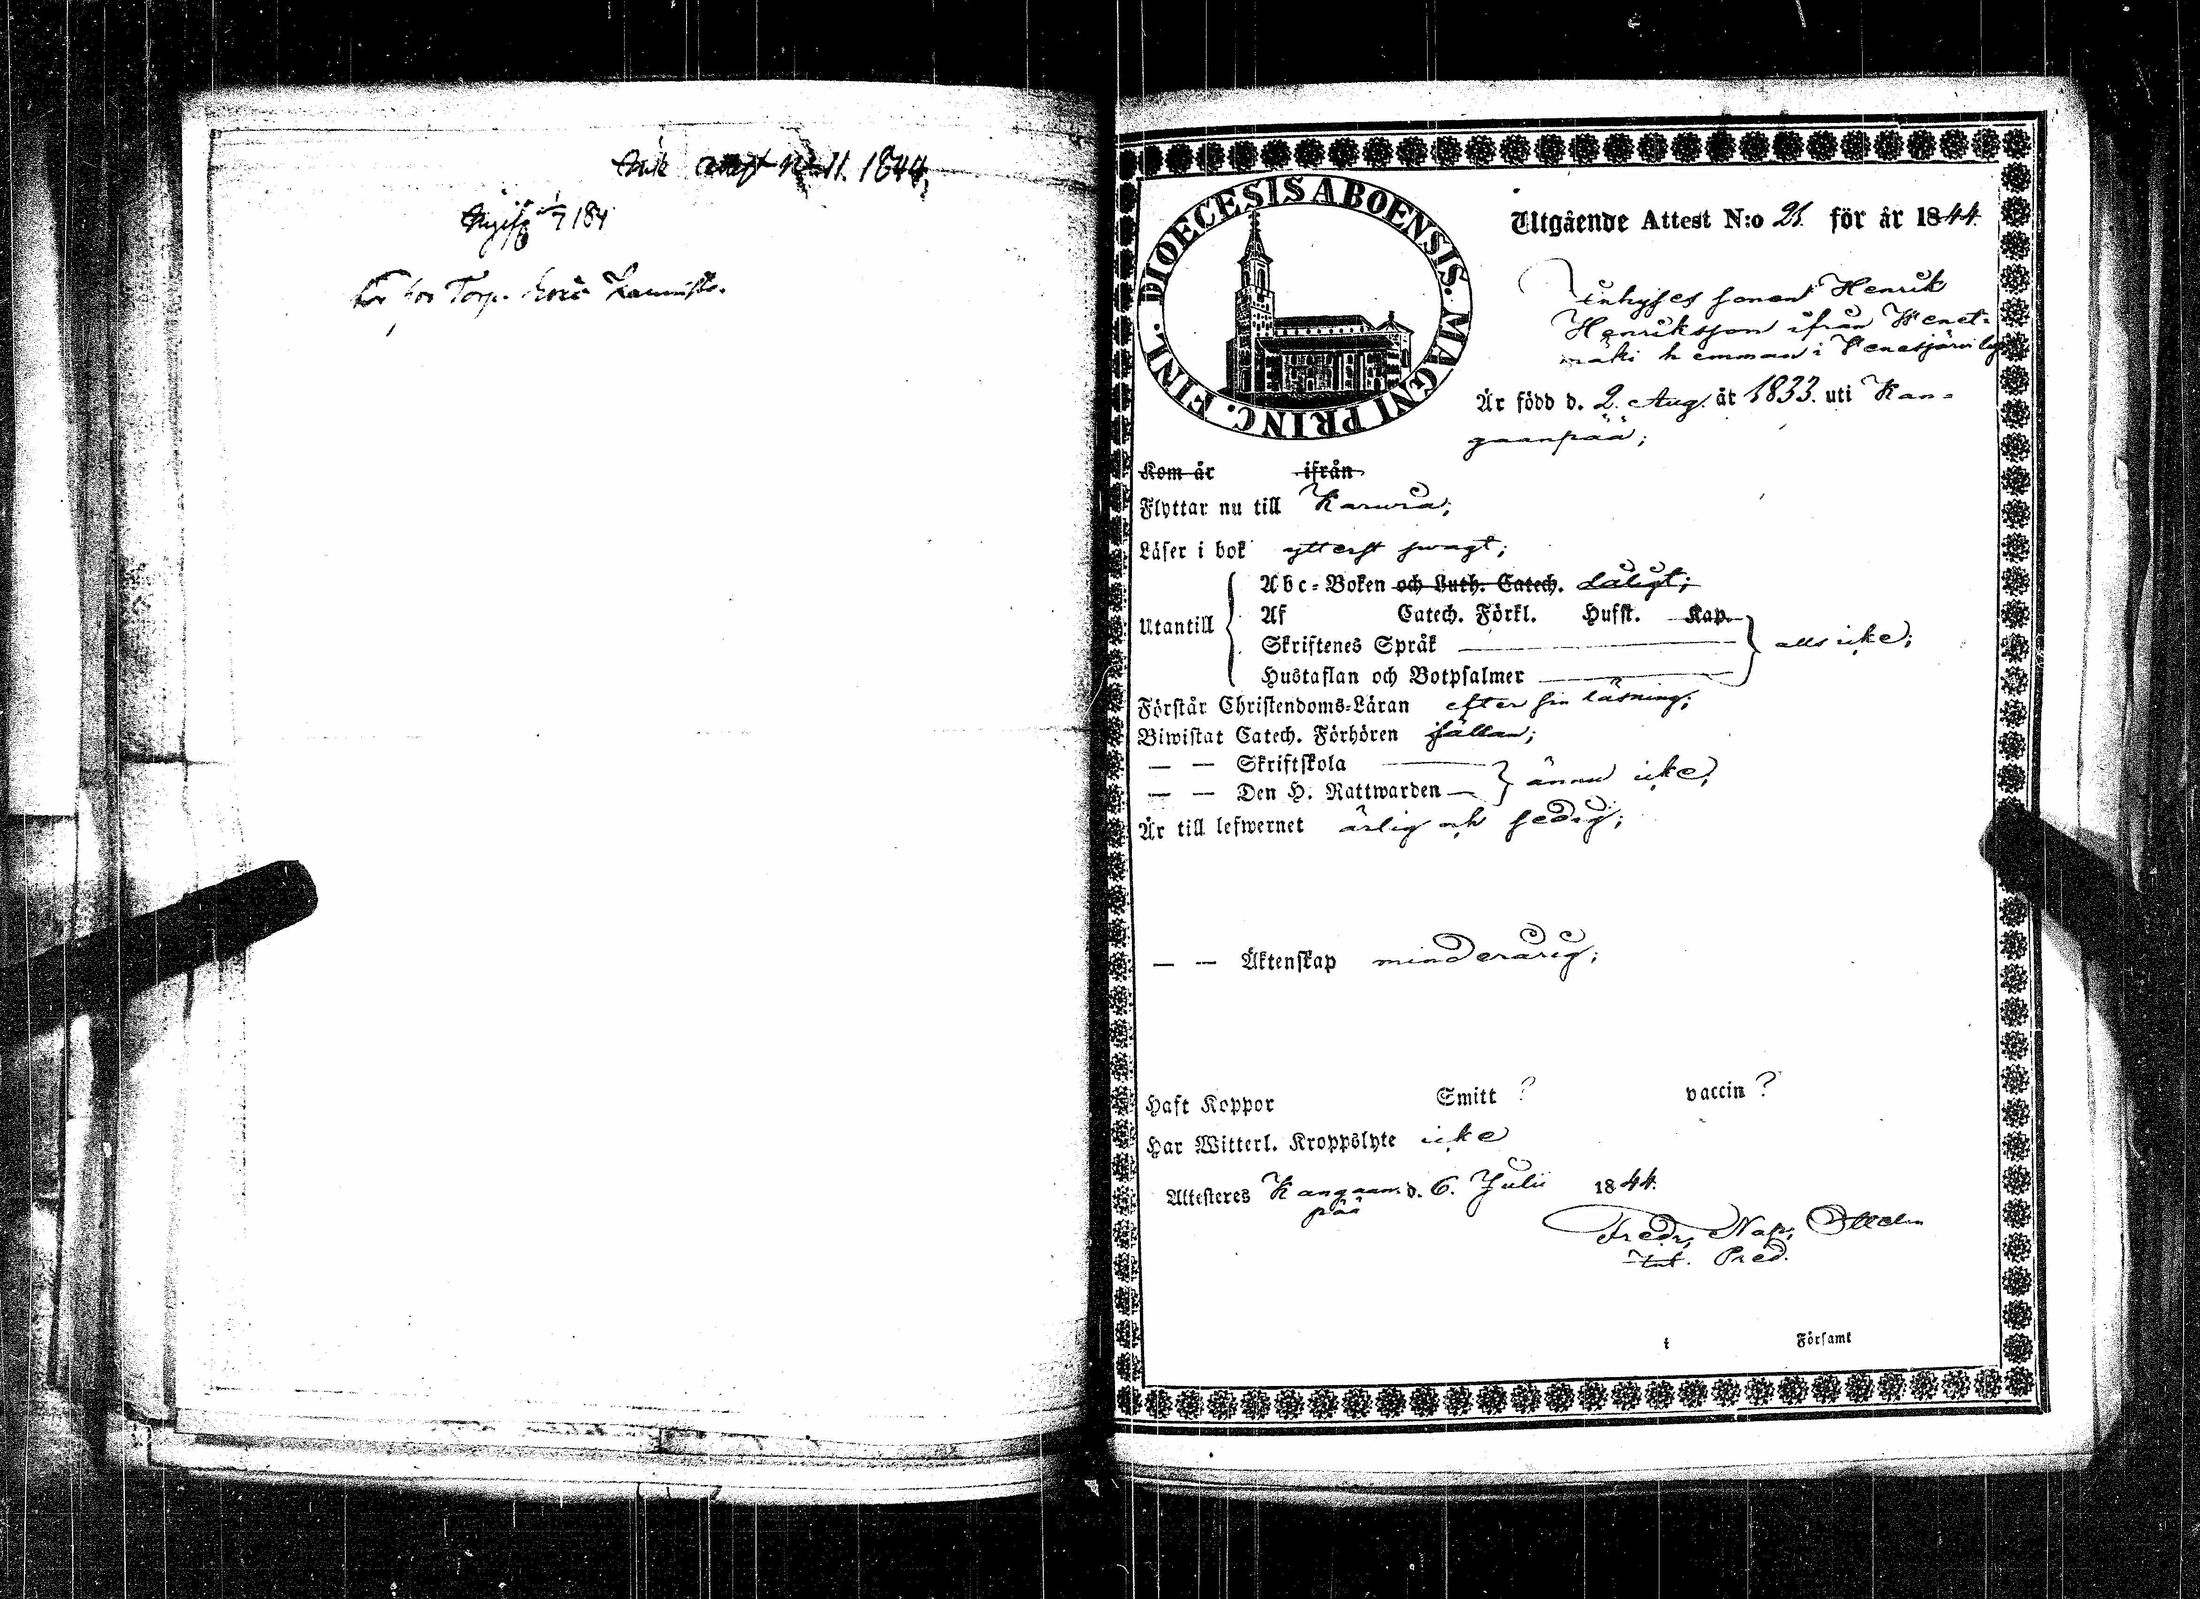 N:o 11. 1844.
för Torp.
DIOECESIS ABOENSIS. MAGNI PRINC. FINL.
Utgående Attest N:o 21. för år 1844.
Inhyses sonen Henrik
Henriksson ifrån Wenet-
mäki hemman i Venesjärvi by
Är född d. 2. Aug. år 1833. uti Kan-
gaanpää;
Kom år ifrån
Flyttar nu till Karvia;
Läser i bok ytterst swagt;
Utantill
Abc-Boken och Luth. Catech. dåligt;
Af Catech. Förkl. Hufst. Kap.
Skriftenes Språk
alls icke;
Hustaflan och Botpsalmer
Förstår Christendoms-Läran efter sin läsning;
Biwistat Catech. Förhören sällan;
— — Skriftskola
ännu icke;
— — Den H. Nattwarden
Är till lefwernet ärlig och sedig;
— — Äktenskap minderårig;
Haft Koppor Smitt ? vaccin ?
Har Witterl. Kroppslyte icke
Attesteres Kangaan- d. 6. Julii 1844.
pää
Fredr. Nap.
Pred.
i Församl